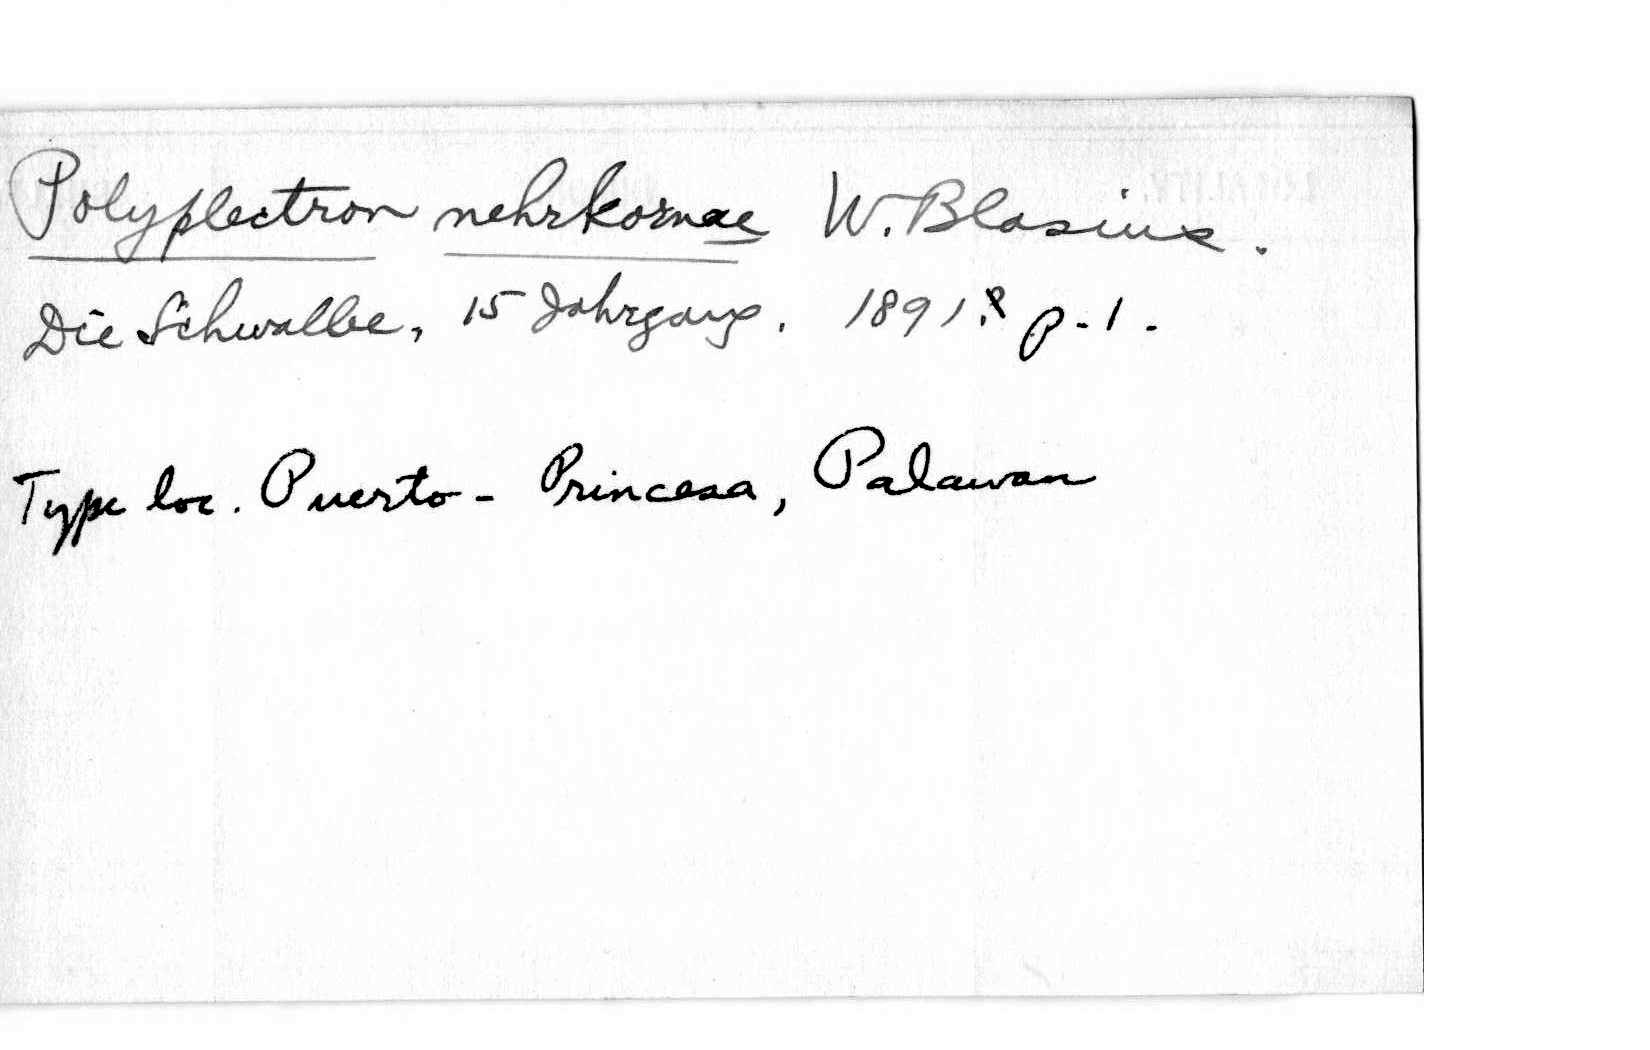 Polyplectron nehrkornae W. Blasius.
Die Schwalbe, 15 Jahrgang. 1891? p. 1.
Type loc. Puerto-Princesa, Palawan